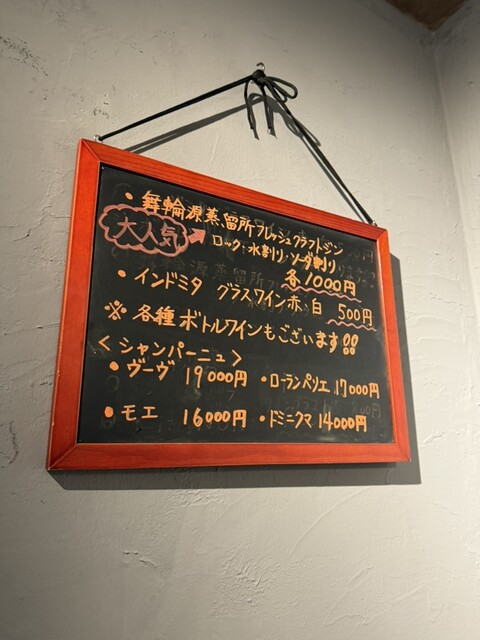 ・舞輪源蒸留所フレッシュクラフトジン
大人気
ロック・水割り・ソーダ割り
各1000円
・インドミタ グラスワイン赤・白 500円
※各種ボトルワインもございます!!
<シャンパーニュ>
・ヴーヴ 19000円 ・ローランペリエ 17000円
・モエ 16000円 ・ドミニクマ 14000円